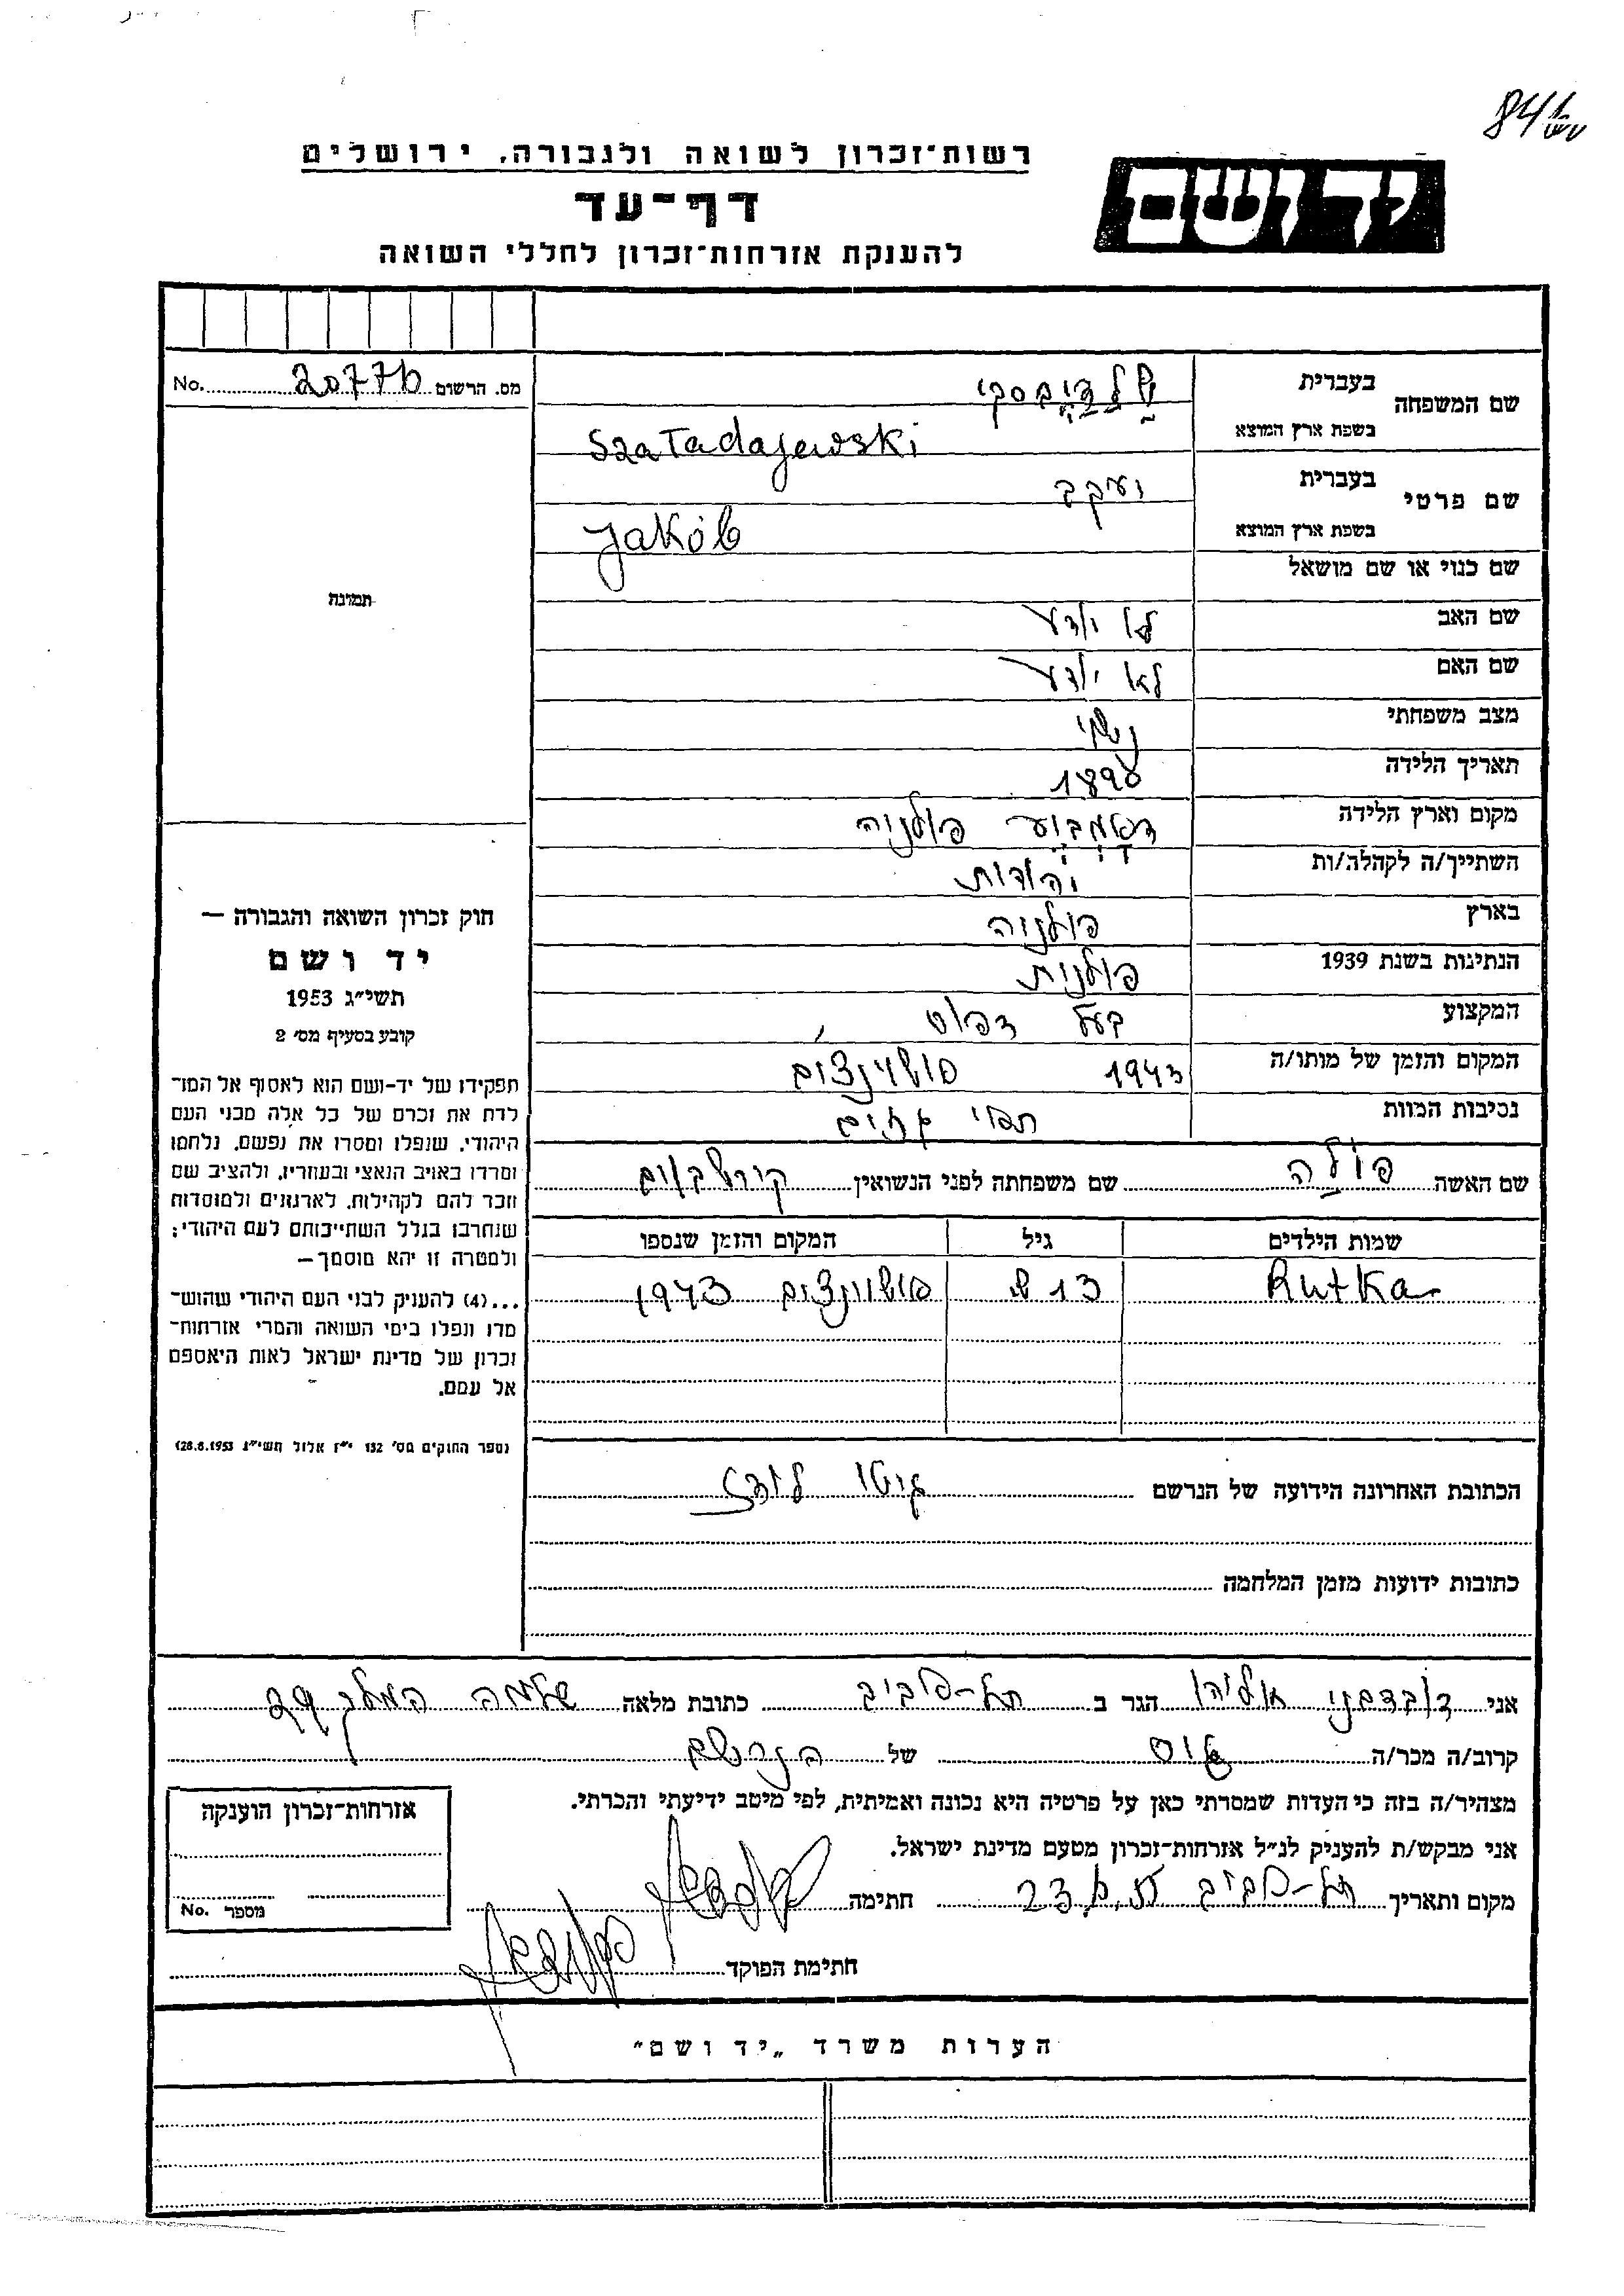 רשות־זכרון לשואה ולגבורה, ירושלים
יד ושם
דף־עד
להענקת אזרחות־זכרון לחללי השואה
מס. הרשום No.
שם המשפחה
בעברית
בשפת ארץ המוצא Szatadajewski
שם פרטי
בעברית יעקב
בשפת ארץ המוצא Jakób
שם כנוי או שם מושאל
שם האב לא יודע
שם האם לא יודע
מצב משפחתי נשוי
תאריך הלידה
מקום וארץ הלידה פולניה
השתייך/ה לקהלה/ות יהודית
בארץ פולניה
הנתינות בשנת 1939 פולנית
המקצוע בעל דפוס
המקום והזמן של מותו/ה 1943 אושוינצים
נסיבות המוות תאי גזים
שם האשה פולה שם משפחתה לפני הנשואין
שמות הילדים גיל המקום והזמן שנספו
Rutka 13 ש אושוינצים 1943
הכתובת האחרונה הידועה של הנרשם גיטו לודז
כתובות ידועות מזמן המלחמה
תמונה
חוק זכרון השואה והגבורה —
יד ושם
תשי״ג 1953
קובע בסעיף מס׳ 2
תפקידו של יד-ושם הוא לאסוף אל המו־
לדת את זכרם של כל אלה מבני העם
היהודי, שנפלו ומסרו את נפשם, נלחמו
ומרדו באויב הנאצי ובעוזריו, ולהציב שם
וזכר להם לקהילות, לארגונים ולמוסדות
שנחרבו בגלל השתייכותם לעם היהודי;
ולמטרה זו יהא מוסמך—
...(4) להעניק לבני העם היהודי שהוש־
מדו ונפלו בימי השואה והמרי אזרחות־
זכרון של מדינת ישראל לאות היאספם
אל עמם.
(ספר החוקים מס׳ 132 י״ז אלול תשי״ג 28.8.1953)
אני אליהו הגר ב תל-אביב כתובת מלאה שלמה המלך 29
קרוב/ה מכר/ה גיס של הנרשם
מצהיר/ה בזה כי העדות שמסרתי כאן על פרטיה היא נכונה ואמיתית, לפי מיטב ידיעתי והכרתי.
אני מבקש/ת להעניק לנ״ל אזרחות־זכרון מטעם מדינת ישראל.
מקום ותאריך תל-אביב חתימה
חתימת הפוקד
אזרחות־זכרון הוענקה
מספר No.
הערות משרד „יד ושם״